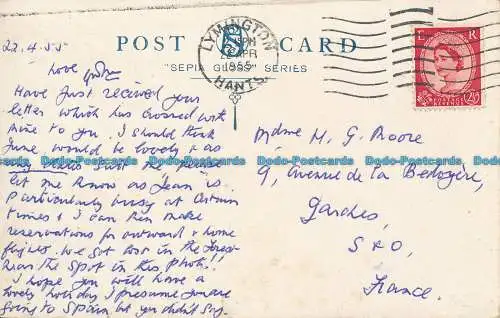 22.4.55
POST CARD
"SEPIA GLOSSY" SERIES
LYMINGTON
HANTS
APR
1955
E R
POSTAGE REVENUE
2½D
love
Have just received your
letter which has crossed with
mine to you. I should think
June would be lovely & as
let me know as Jean is
particularly busy at certain
times & I can then make
reservations for outward & home
flights. We got lost in the Forest
near the spot in this photo!!
I hope you will have a
lovely holiday I presume you are
going to Spain but you didn't say.
Mdme H. G. Moore
9, Avenue de la
Garches,
S & O,
France.
Dodo-Postcards Dodo-Postcards Dodo-Postcards Dodo-Postcards